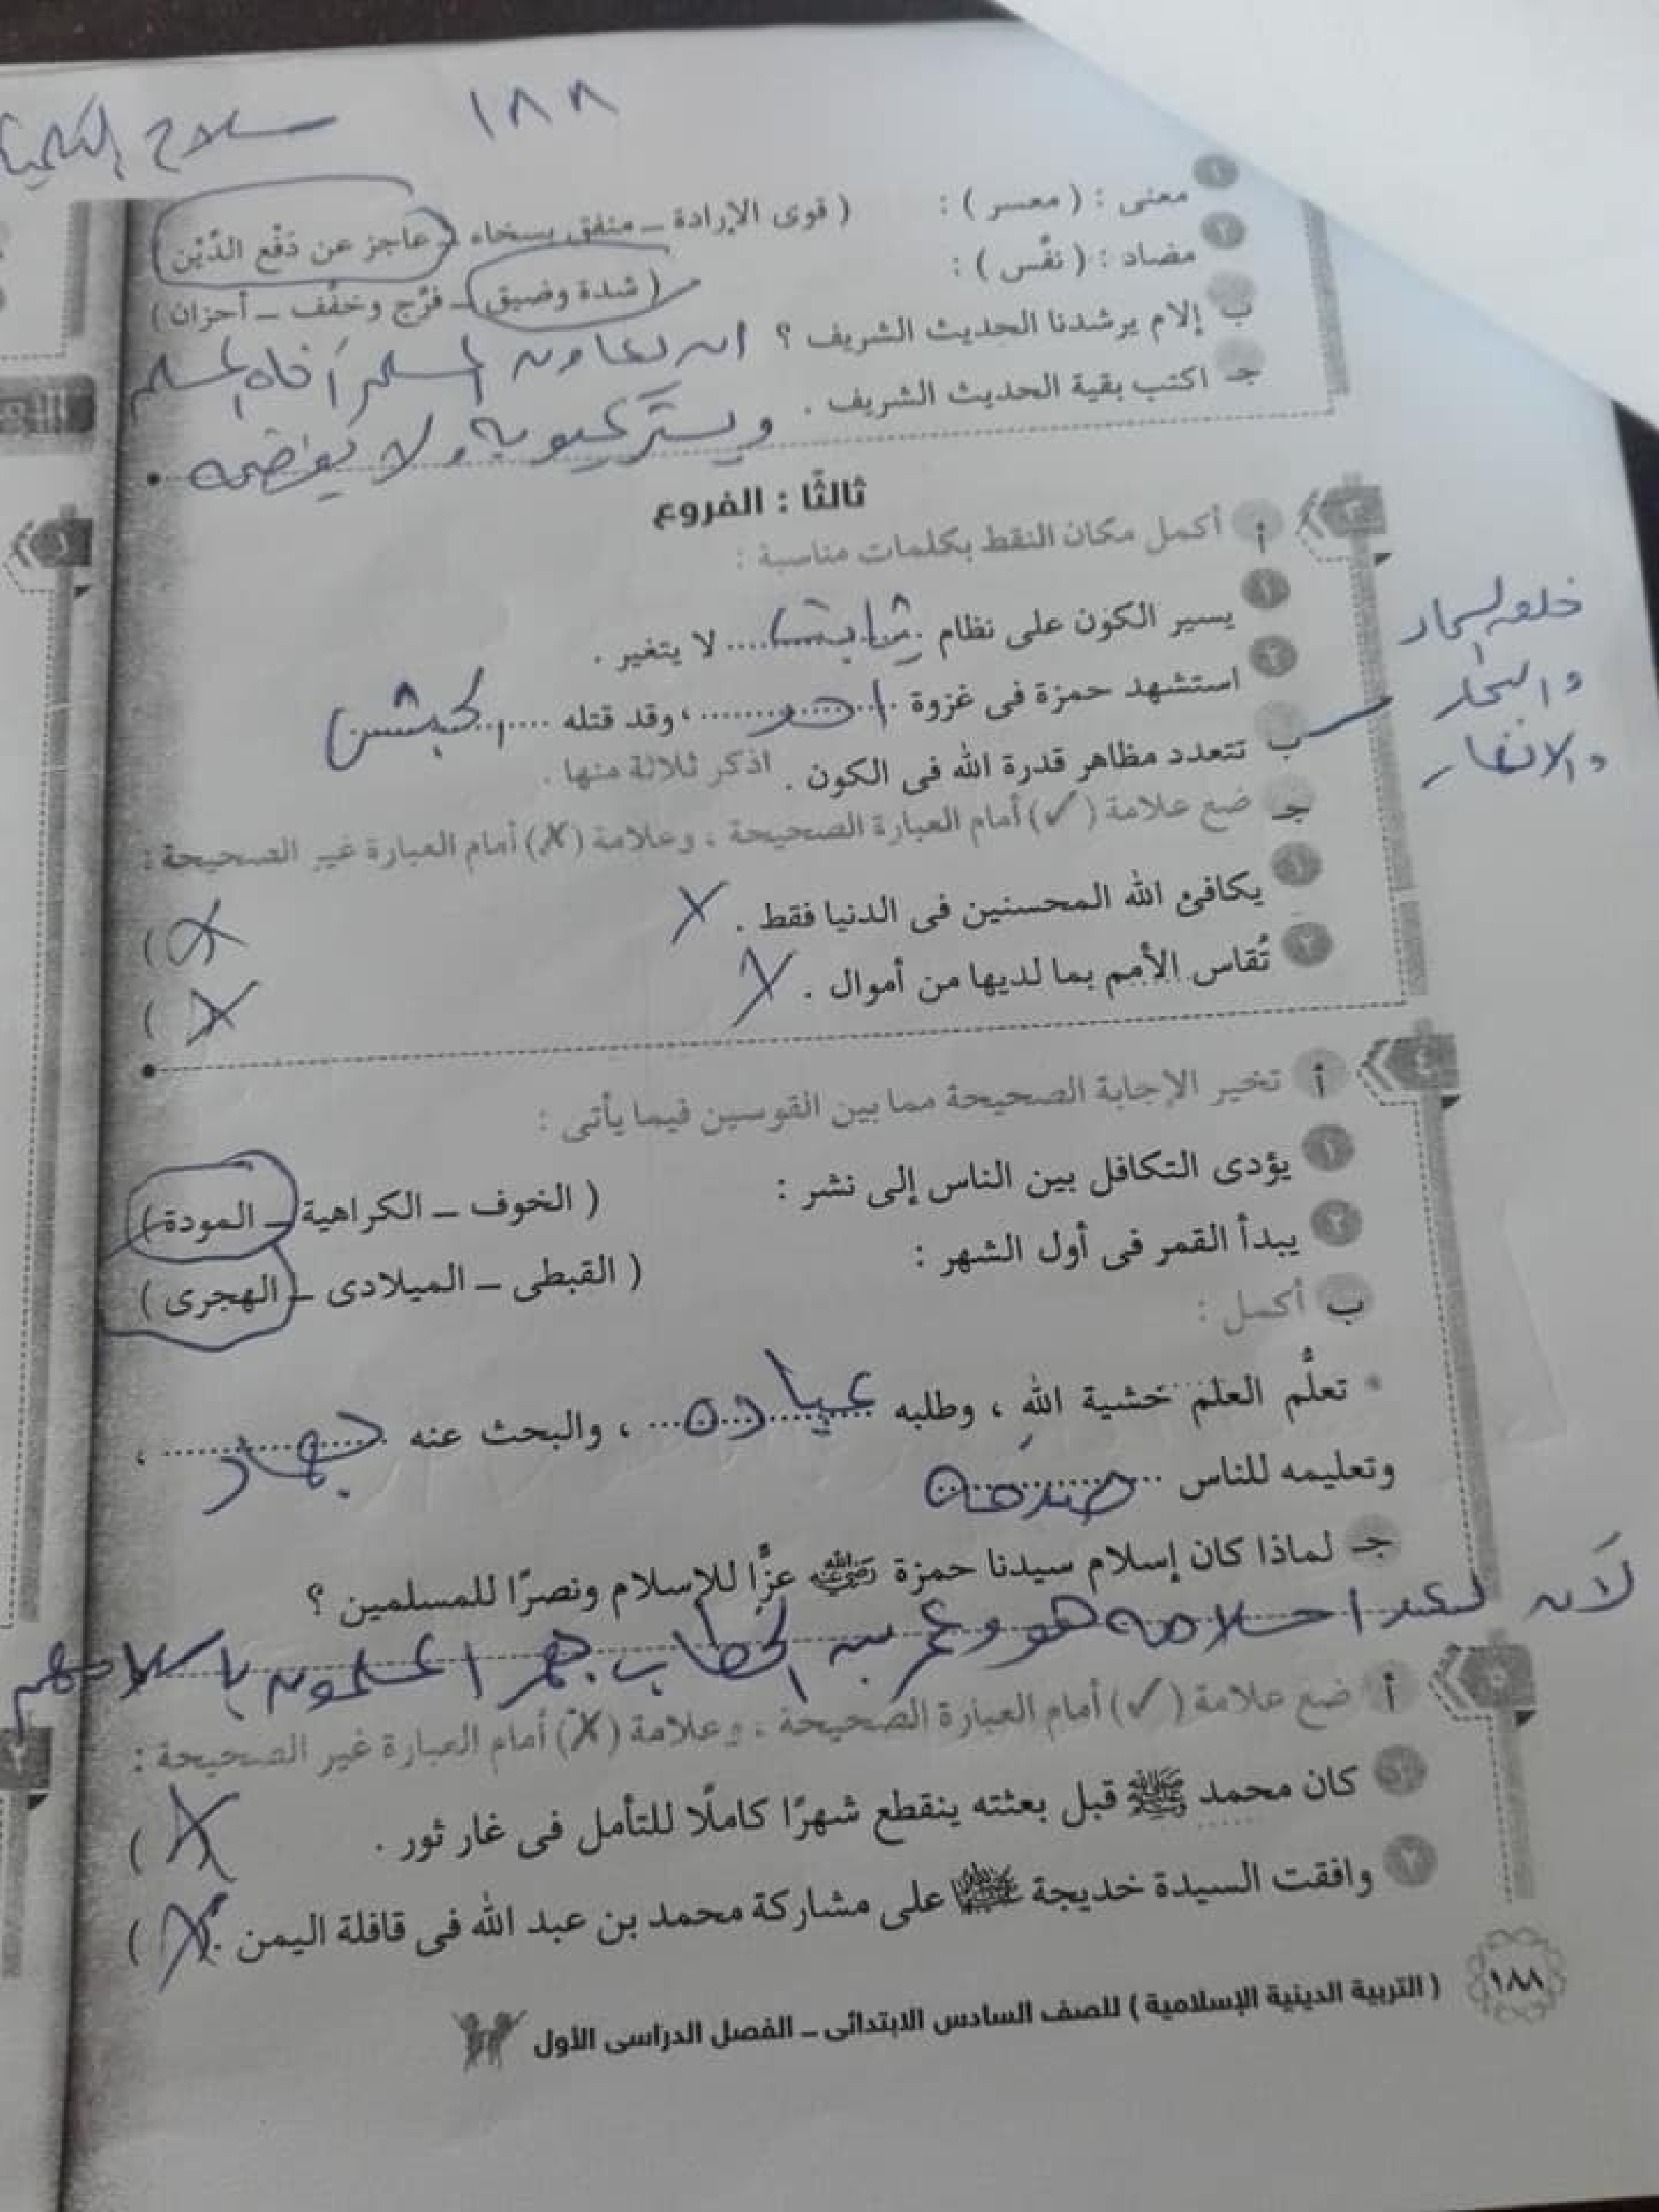 ١٨٨ سلاح التلميذ
١ معنى : ( معسر ) : ( قوى الإرادة – منفق بسخاء – عاجز عن دَفْع الدَّيْن )
٢ مضاد : ( نفَّس ) : ( شدة وضيق – فرَّج وخفَّف – أحزان )
ب إلام يرشدنا الحديث الشريف ؟ المسلم أخاه المسلم
جـ اكتب بقية الحديث الشريف .
ويستر عيوبه ولا
ثالثًا : الفروع
٣ أ أكمل مكان النقط بكلمات مناسبة :
١ يسير الكون على نظام ثابت لا يتغير .
٢ استشهد حمزة فى غزوة أحد ، وقد قتله
ب تتعدد مظاهر قدرة الله فى الكون . اذكر ثلاثة منها .
والبحار
والانهار
جـ ضع علامة (✓) أمام العبارة الصحيحة ، وعلامة (X) أمام العبارة غير الصحيحة :
١ يكافئ الله المحسنين فى الدنيا فقط . X ( X )
٢ تُقاس الأمم بما لديها من أموال . X ( X )
٤ أ تخير الإجابة الصحيحة مما بين القوسين فيما يأتى :
١ يؤدى التكافل بين الناس إلى نشر : ( الخوف – الكراهية – المودة )
٢ يبدأ القمر فى أول الشهر : ( القبطى – الميلادى – الهجرى )
ب أكمل :
• تعلُّم العلم خشية اللهِ ، وطلبه عبادة ، والبحث عنه جهاد ،
وتعليمه للناس صدقة
جـ لماذا كان إسلام سيدنا حمزة رضي الله عنه عزًّا للإسلام ونصرًا للمسلمين ؟
لأن بعد اسلامه هو وعمر بن الخطاب جهر المسلمون باسلامهم
٥ أ ضع علامة (✓) أمام العبارة الصحيحة ، وعلامة (X) أمام العبارة غير الصحيحة :
١ كان محمد ﷺ قبل بعثته ينقطع شهرًا كاملًا للتأمل فى غار ثور . ( X )
٢ وافقت السيدة خديجة على مشاركة محمد بن عبد الله فى قافلة اليمن . ( X )
١٨٨ ( التربية الدينية الإسلامية ) للصف السادس الابتدائى – الفصل الدراسى الأول